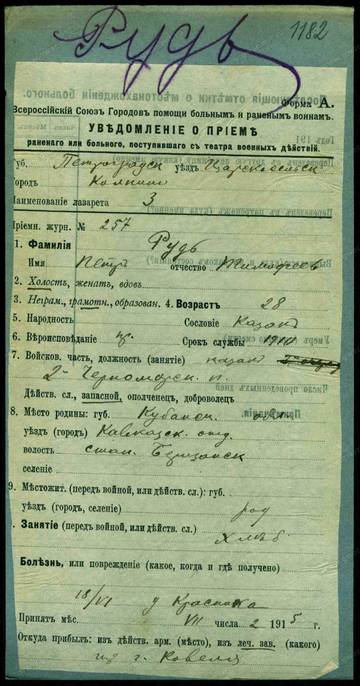 Рудь
1182
Форма А.
Всероссійскій Союзъ Городовъ помощи больнымъ и раненымъ воинамъ.
УВѢДОМЛЕНІЕ О ПРІЕМѢ
раненаго или больного, поступившаго съ театра военныхъ дѣйствій.
Губ. Петроградск уѣздъ Царскосельск
Городъ Колпино
Наименованіе лазарета 3
Пріемн. журн. № 257
1. Фамилія Рудь
Имя Петръ отчество Тимофеев
2. Холостъ, женатъ, вдовъ
3. Неграм., грамотн., образован. 4. Возрастъ 28
5. Народность Сословіе Казакъ
6. Вѣроисповѣданіе пр. Срокъ службы 1910
7. Войсков. часть, должность (занятіе) казакъ
2- Черноморск. п.
Дѣйств. сл., запасной, ополченецъ, доброволецъ
8. Мѣсто родины: губ. Кубанск. обл
уѣздъ (городъ) Кавказск. отд.
волость стан. Бейсугск
селеніе
9. Мѣстожит. (передъ войной, или дѣйств. сл.): губ.
уѣздъ (городъ, селеніе) род
Занятіе (передъ войной, или дѣйств. сл.)
Хлѣб.
Болѣзнь, или поврежденіе (какое, когда и гдѣ получено)
18/VI у Красника
Принятъ мѣс. VII числа 2 1915 г.
Откуда прибылъ: изъ дѣйств. арм. (мѣсто), изъ леч. зав. (какого)
из г. Ковеля